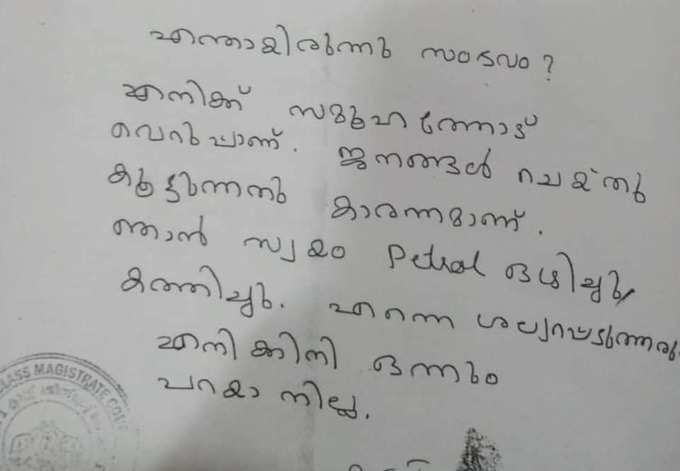 എന്തായിരുന്നു സംഭവം?
എനിക്ക് സമൂഹത്തോട്
വെറുപ്പാണ്. ജനങ്ങൾ ചെയ്തു
കൂട്ടുന്നതു കാരണമാണ്.
ഞാൻ സ്വയം Petrol ഒഴിച്ചു
കത്തിച്ചു. എന്നെ ശല്യപ്പെടുത്തരു
എനിക്കിനി ഒന്നും
പറയാനില്ല.
CLASS MAGISTRATE